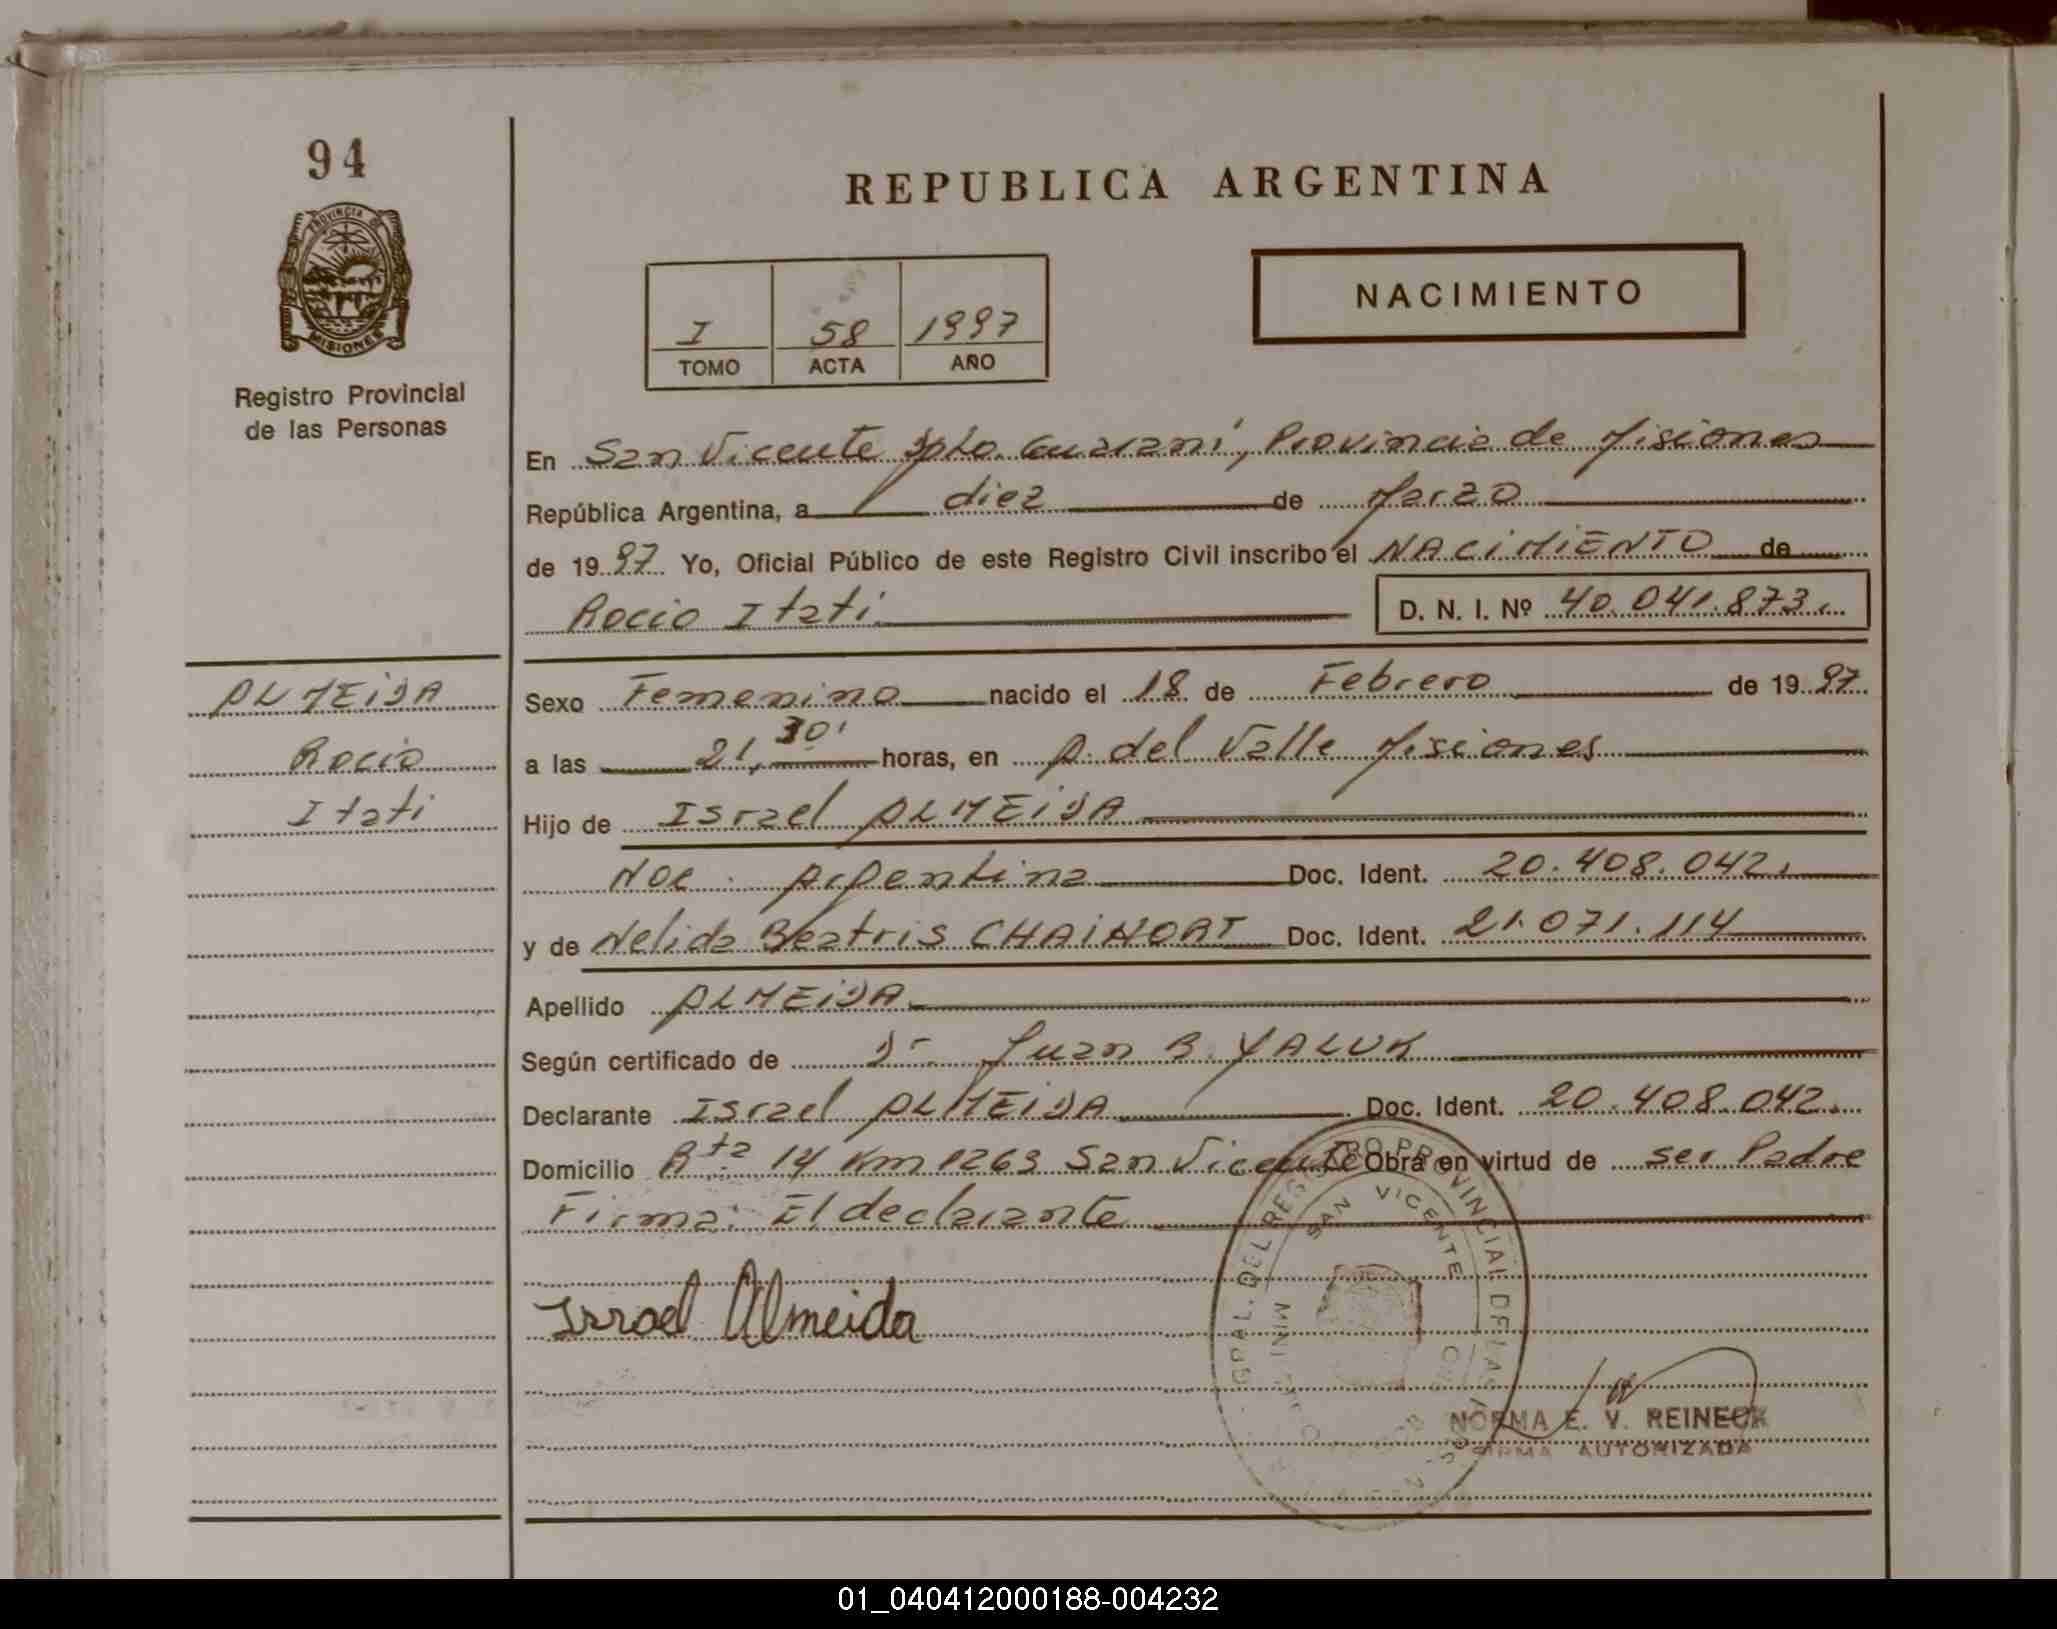 94
PROVINCIA DE
MISIONES
Registro Provincial
de las Personas
REPUBLICA ARGENTINA
NACIMIENTO
I 58 1997
TOMO ACTA AÑO
En San Vicente Dpto. Guaraní, Provincia de Misiones
República Argentina, a diez de Marzo
de 1997 Yo, Oficial Público de este Registro Civil inscribo el NACIMIENTO de
Rocio Itati D. N. I. Nº 40.041.873.
ALMEIDA
Rocio
Itati
Sexo Femenino nacido el 18 de Febrero de 1997
a las 21,30' horas, en A. del Valle Misiones
Hijo de Israel ALMEIDA
Nac. Argentina Doc. Ident. 20.408.042.
y de Nelida Beatris Doc. Ident. 21.071.114
Apellido ALMEIDA
Según certificado de Dr. Juan B. YALUK
Declarante Israel ALMEIDA Doc. Ident. 20.408.042.
Domicilio Rta 14 Km 1263 San Vicente Obra en virtud de ser Padre
Firma: El declarante
Israel Almeida
DEL REGISTRO PROVINCIAL DE LAS
SAN VICENTE
NORMA E. V. REINECK
FIRMA AUTORIZADA
01_040412000188-004232